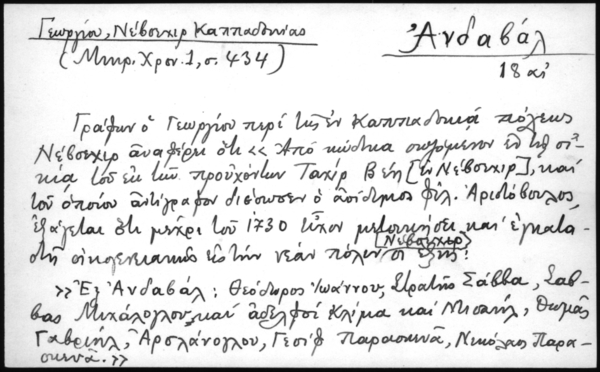 Γεωργίου, Νέβσεχιρ Καππαδοκίας
(Μικρ. Χρον. 1, σ. 434)
Ἀνδαβάλ
18 αἰ
Γράφων ὁ Γεωργίου περί τῆς ἐν Καππαδοκίᾳ πόλεως
Νέβσεχιρ ἀναφέρει ὅτι << Ἀπό κώδικα σωζόμενον ἐν τῇ οἰ-
κίᾳ τοῦ ἐκ τῶν προὐχόντων Ταχίρ Βέη [ἐν Νέβσεχιρ], καί
τοῦ ὁποίου ἀντίγραφον διέσωσεν ὁ ἀοίδιμος φιλ. Ἀριστόβουλος,
ἐξάγεται ὅτι μέχρι τοῦ 1730 εἶχον μετοικήσει καί ἐγκατα-
στῆ οἰκογενειακῶς εἰς τήν νέαν πόλιν [Νέβσεχιρ] οἱ ἑξῆς:
>> Ἐξ Ἀνδαβάλ: Θεόδωρος Ἰωάννου, Στρατῆς Σάββα, Σάβ-
βας Μιχάλογλου, καί ἀδελφοί Κλήμα καί Μισαήλ, Θωμᾶς
Γαβριήλ, Ἀρσλάνογλου, Γεσίφ Παρασκευᾶ, Νικόλαος Παρα-
σκευᾶ. >>